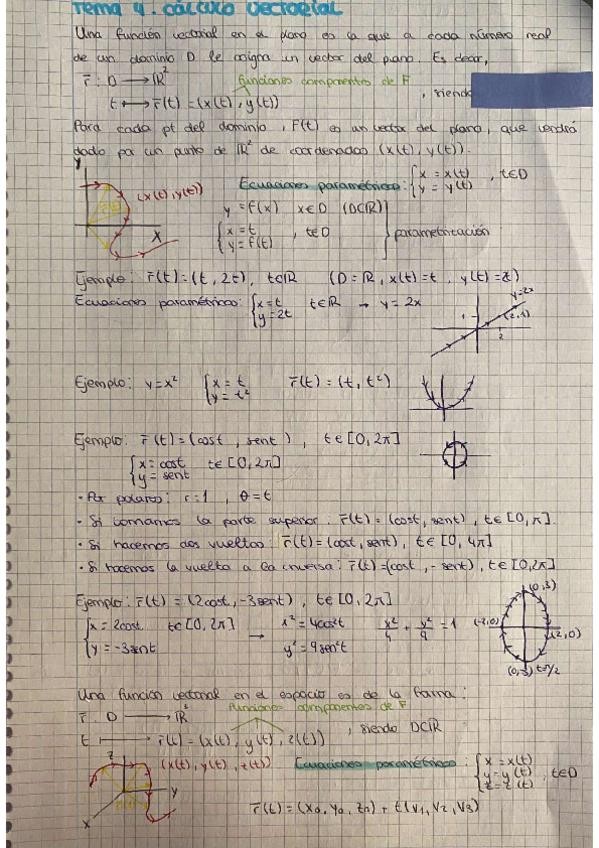 Tema 4. Cálculo Vectorial
Una función vectorial en el plano es la que a cada número real
de un dominio D le asigna un vector del plano. Es decir,
r̄ : D → ℝ² funciones componentes de F
t ↦ r̄(t) = (x(t), y(t)) , siendo
Para cada pt del dominio, F(t) es un vector del plano, que vendrá
dado por un punto de ℝ² de coordenadas (x(t), y(t)).
y
(x(t), y(t))
x
Ecuaciones paramétricas: { x = x(t) , t∈D
y = y(t)
y = f(x) x∈D (D⊂ℝ)
{ x = t , t∈D
y = f(t)
parametrización
Ejemplo: r̄(t) = (t, 2t), t∈ℝ (D = ℝ, x(t) = t, y(t) = 2t)
Ecuaciones paramétricas: { x = t t∈ℝ → y = 2x
y = 2t
y=2x
1
(2,1)
2
Ejemplo: y = x² { x = t r̄(t) = (t, t²)
y = t²
Ejemplo: r̄(t) = (cost, sent), t∈[0, 2π]
{ x = cost t∈[0, 2π]
y = sent
· Por polares: r = 1, θ = t
· Si tomamos la parte superior: r̄(t) = (cost, sent), t∈[0, π].
· Si hacemos dos vueltas: r̄(t) = (cost, sent), t∈[0, 4π]
· Si hacemos la vuelta a la inversa: r̄(t) = (cost, -sent), t∈[0, 2π]
Ejemplo: r̄(t) = (2cost, -3sent), t∈[0, 2π]
{ x = 2cost t∈[0, 2π] → x² = 4cos²t x²/4 + y²/9 = 1
y = -3sent y² = 9sen²t
(0,3)
(-2,0)
(2,0)
(0,3) t=π/2
Una función vectorial en el espacio es de la forma:
r̄ : D → ℝ³ funciones componentes de F
t → r̄(t) = (x(t), y(t), z(t)) , siendo D⊂ℝ
z
(x(t), y(t), z(t))
y
x
Ecuaciones paramétricas: { x = x(t)
y = y(t) , t∈D
z = z(t)
r̄(t) = (x₀, y₀, z₀) + t(v₁, v₂, v₃)